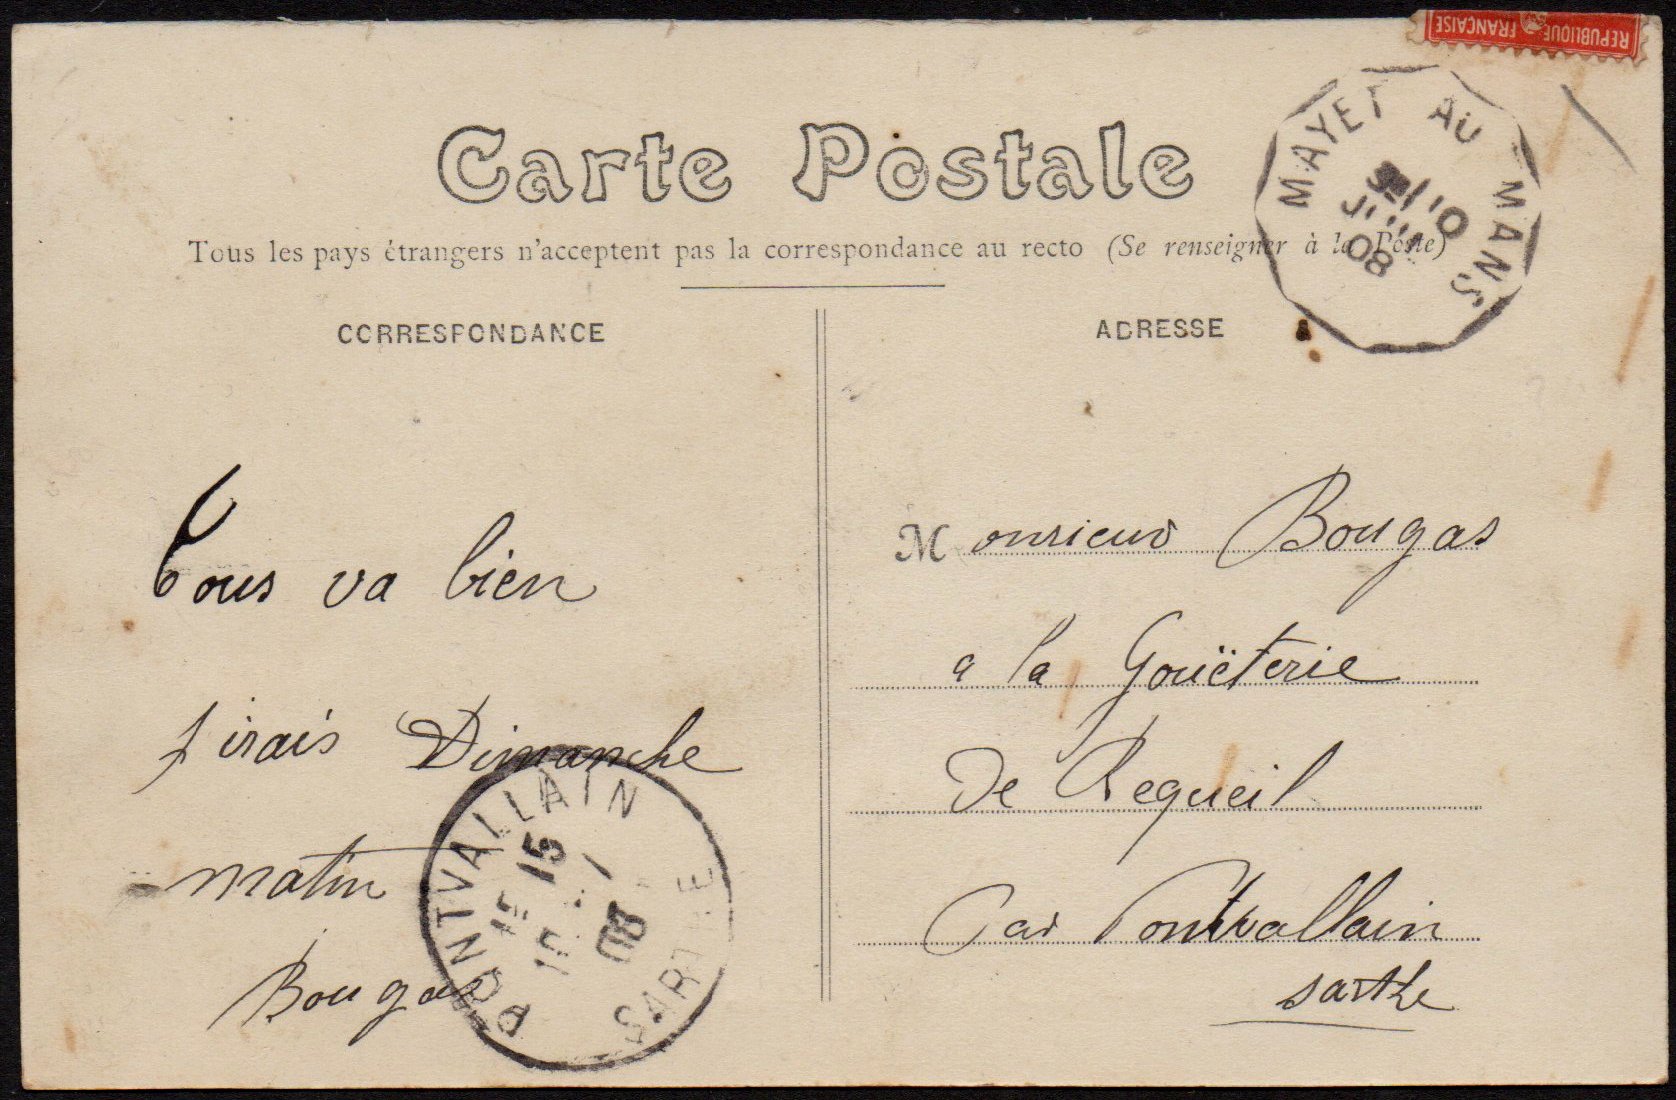 REPUBLIQUE FRANÇAISE
Carte Postale
Tous les pays étrangers n'acceptent pas la correspondance au recto (Se renseigner à la Poste)
MAYET AU MANS
10
JUIN
08
CORRESPONDANCE
ADRESSE
Tous va bien
j irais Dimanche
matin
Bougas
PONTVALLAIN
15
08
SARTHE
Monsieur Bougas
a la Gouëterie
De Requeil
Par Pontvallain
sarthe